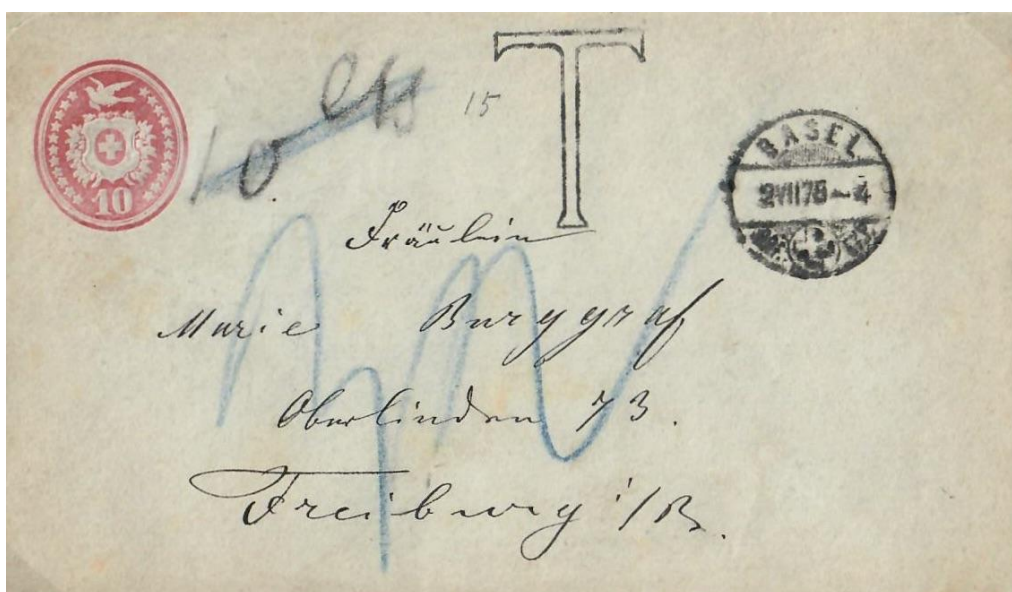 10
15
T
BASEL
Fräulein
Marie Burggraf
Oberlinden 73.
Freiburg i/B.